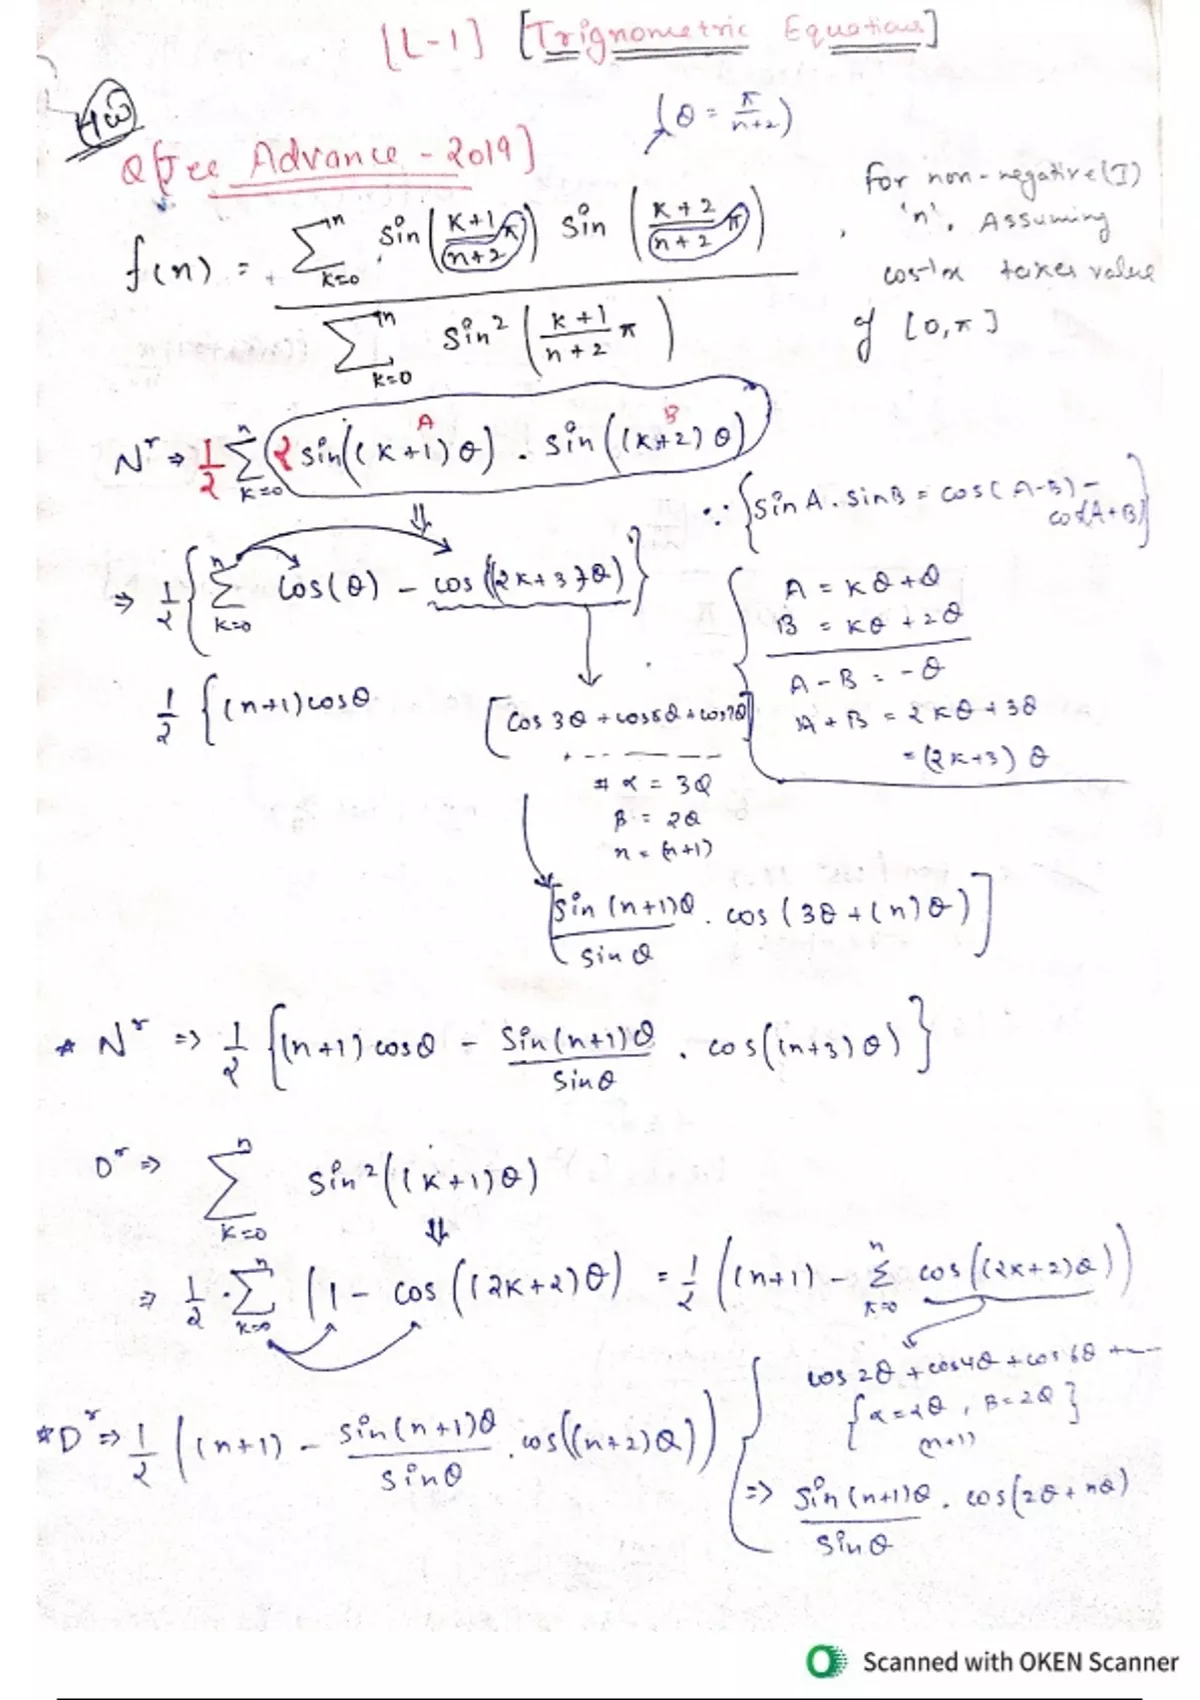 [L-1] [Trignometric Equations]
HW
(θ = π/(n+2))
Q[Jee Advance - 2019]
f(n) = Σ_{k=0}^{n} sin((k+1)/(n+2) π) sin((k+2)/(n+2) π) / Σ_{k=0}^{n} sin²((k+1)/(n+2) π) ,
for non-negative (I)
'n'. Assuming
cos⁻¹x takes value
of [0,π]
Nʳ ⇒ 1/2 Σ_{k=0}^{n} (2 sin((k+1)θ) . sin((k+2)θ)
A B
⇓
∵ {sin A . sin B = cos(A-B) -
cos(A+B)}
⇒ 1/2 { Σ_{k=0}^{n} cos(θ) - cos((2k+3)θ) }
A = kθ + θ
B = kθ + 2θ
A - B = -θ
A + B = 2kθ + 3θ
= (2k+3) θ
1/2 { (n+1) cosθ
[cos 3θ + cos5θ + cos7θ
+ - - - - - -
# α = 3θ
β = 2θ
n = (n+1)
sin (n+1)θ / sin θ . cos (3θ + (n)θ) ]
* Nʳ ⇒ 1/2 { (n+1) cosθ - sin(n+1)θ / sinθ . cos((n+3)θ) }
Dʳ ⇒ Σ_{k=0}^{n} sin²((k+1)θ)
⇓
⇒ 1/2 . Σ_{k=0}^{n} (1 - cos((2k+2)θ) = 1/2 ((n+1) - Σ_{k=0}^{n} cos((2k+2)θ))
cos 2θ + cos4θ + cos 6θ + ---
{α = 2θ , β = 2θ}
(n+1)
* Dʳ ⇒ 1/2 ((n+1) - sin(n+1)θ / sinθ . cos((n+2)θ))
⇒ sin (n+1)θ / sinθ . cos(2θ + nθ)
Scanned with OKEN Scanner